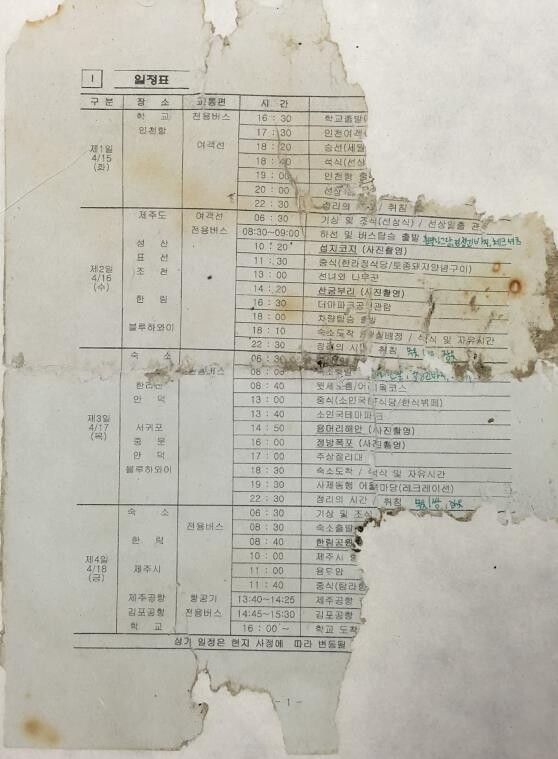 I 일정표
구 분 장 소 교통편 시 간
학 교 전용버스 16 : 30 학교출발
인천항 17 : 30 인천여객
제1일 여객선 18 : 20 승선(세월
4/15 18 : 40 석식(선상
(화) 19 : 00 인천항 출항
20 : 00 선상
22 : 30 정리의 / 취침
제주도 여객선 06 : 30 기상 및 조식(선상식) / 선상일출 관
전용버스 08:30~09:00 하선 및 버스탑승 출발
성 산 10 : 20 섭지코지 (사진촬영)
제2일 표 선 11 : 30 중식(한라정식당/토종돼지양념구이)
4/16 조 천 13 : 00 선녀와 나무꾼
(수) 14 : 20 산굼부리 (사진촬영)
한 림 16 : 30 더마파크공연관람
18 : 00 차량탑승 출발
블루하와이 18 : 10 숙소도착 / 실배정 / 석식 및 자유시간
22 : 30 정리의 시간 / 취침
숙 소 06 : 30
전용버스 08 : 00 숙소출발
한라산 08 : 40 윗세오름/어리목코스
제3일 안 덕 13 : 00 중식(소인국한식당/한식뷔페)
4/17 13 : 40 소인국테마파크
(목) 서귀포 14 : 50 용머리해안 (사진촬영)
중 문 16 : 00 정방폭포 (사진촬영)
안 덕 17 : 00 주상절리대
블루하와이 18 : 30 숙소도착 / 석식 및 자유시간
19 : 30 사제동행 어울마당(레크레이션)
22 : 30 정리의 시간 / 취침
숙 소 06 : 30 기상 및 조식
전용버스 08 : 30 숙소출발
한 림 08 : 40 한림공원
제4일 10 : 00 제주시
4/18 제주시 11 : 00 용두암
(금) 11 : 40 중식(탐라
제주공항 항공기 13:40~14:25 제주공항
김포공항 전용버스 14:45~15:30 김포공항
학 교 16 : 00 ~ 학교 도착
상기 일정은 현지 사정에 따라 변동될
- 1 -